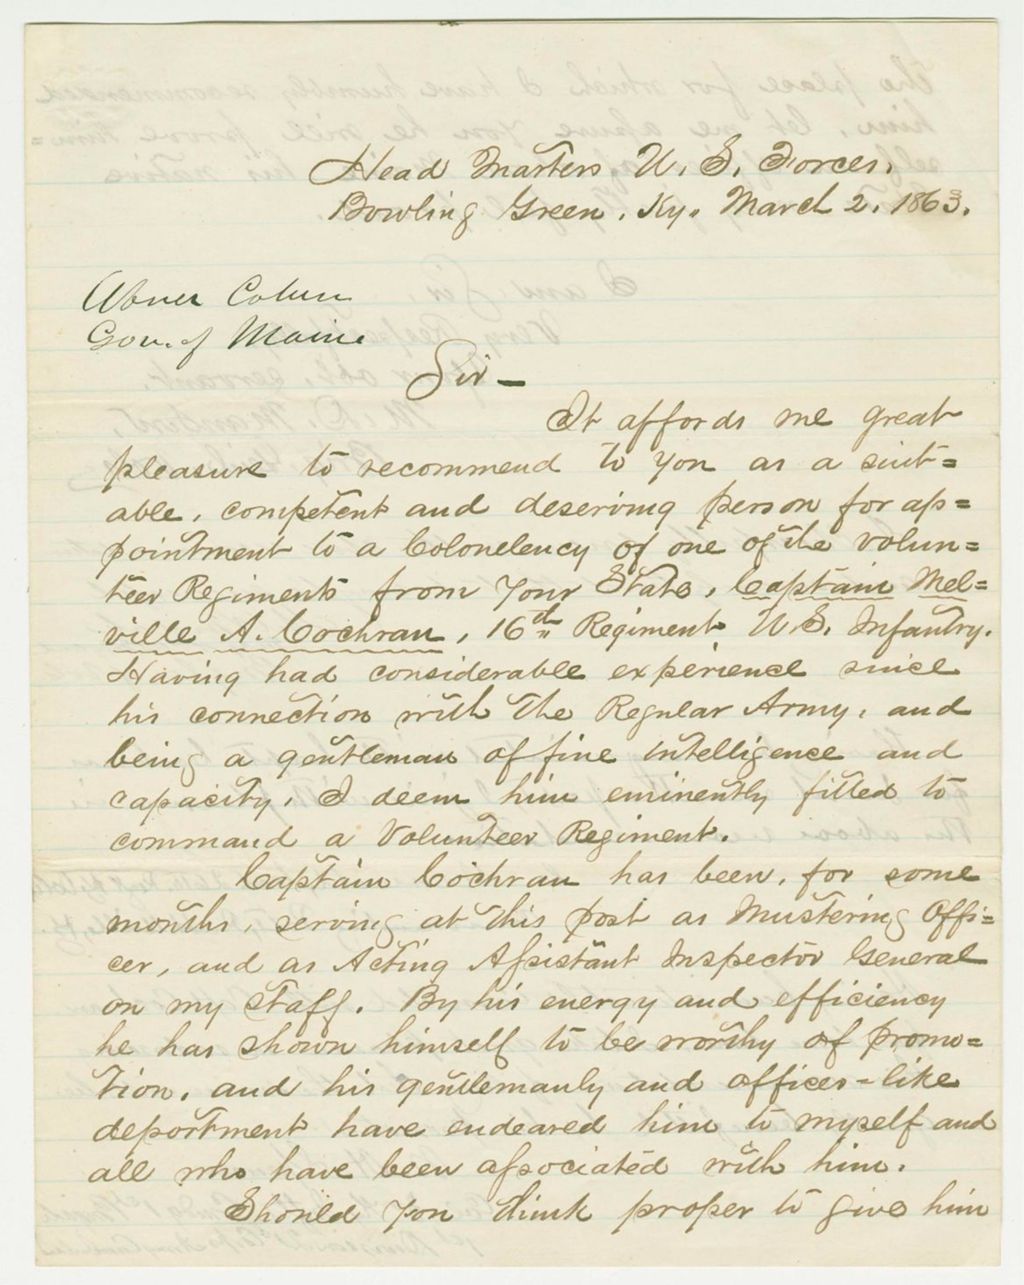 Head Quarters U. S. Forces.
Bowling Green, Ky. March 2. 1863.
Abner Coburn
Gov. of Maine
Sir —
It affords me great
pleasure to recommend to you as a suit=
able, competent and deserving person for ap=
pointment to a Colonelency of one of the volun=
teer Regiments from your State, Captain Mel=
ville A. Cochran, 16th Regiment U.S. Infantry.
Having had considerable experience since
his connection with the Regular Army, and
being a gentleman of fine intelligence and
capacity, I deem him eminently fitted to
command a Volunteer Regiment.
Captain Cochran has been, for some
months, serving at this post as Mustering Offi=
cer, and as Acting Assistant Inspector General
on my staff. By his energy and efficiency
he has shown himself to be worthy of promo=
tion, and his gentlemanly and officer=like
deportment have endeared him to myself and
all who have been associated with him.
Should you think proper to give him